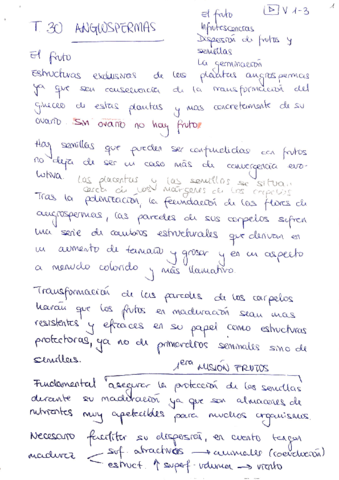 T 30 ANGIOSPERMAS
El fruto
Infrutescencias
Dispersión de frutos y
semillas
La germinación
D V 1-3
El fruto
Estructuras exclusivas de las plantas angiospermas
ya que son consecuencia de la transformación del
gineceo de estas plantas y mas concretamente de su
ovario Sin ovario no hay fruto
Hay semillas que puedes ser confundidas con frutos
no deja de ser un caso más de convergencia evo-
lutiva
Las placentas y las semillas se situan
cerca de los márgenes de los carpelos
Tras la polinización, la fecundación de las flores de
angiospermas, las paredes de sus carpelos sufren
una serie de cambios estructurales que derivan en
un aumento de tamaño y grosor y en un aspecto
a menudo colorido y más llamativo
Transformación de las paredes de los carpelos
harán que los frutos en maduración sean mas
resistentes y eficaces en su papel como estructuras
protectoras, ya no de primordios seminales sino de
semillas.
1era MISIÓN FRUTOS
Fundamental asegurar la protección de las semillas
durante su maduración ya que son almacenes de
nutrientes muy apetecibles para muchos organismos.
Necesario facilitar su dispersión, en cuanto tengan
madurez < suf. atractivos → animales (coevolución)
estruct. ↑ superf. volumen → viento